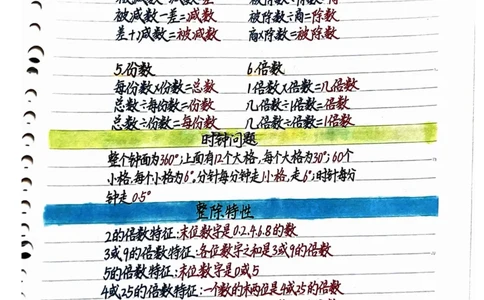 被减数-差=减数
被除数÷商=除数
差+减数=被减数
商×除数=被除数
5.份数
6.倍数
每份数×份数=总数
1倍数×倍数=几倍数
总数÷每份数=份数
几倍数÷1倍数=倍数
总数÷份数=每份数
几倍数÷倍数=1倍数
时钟问题
整个钟面为360°,上面有12个大格,每个大格为30°;60个
小格,每个小格为6°,分针每分钟走1小格,走6°;时针每分
钟走0.5°
整除特性
2的倍数特征:末位数字是0.2.4.6.8的数
3或9的倍数特征:各位数字之和是3或9的倍数
5的倍数特征:末位数字是0或5
4或25的倍数特征:一个数的末两位是4或25的倍数